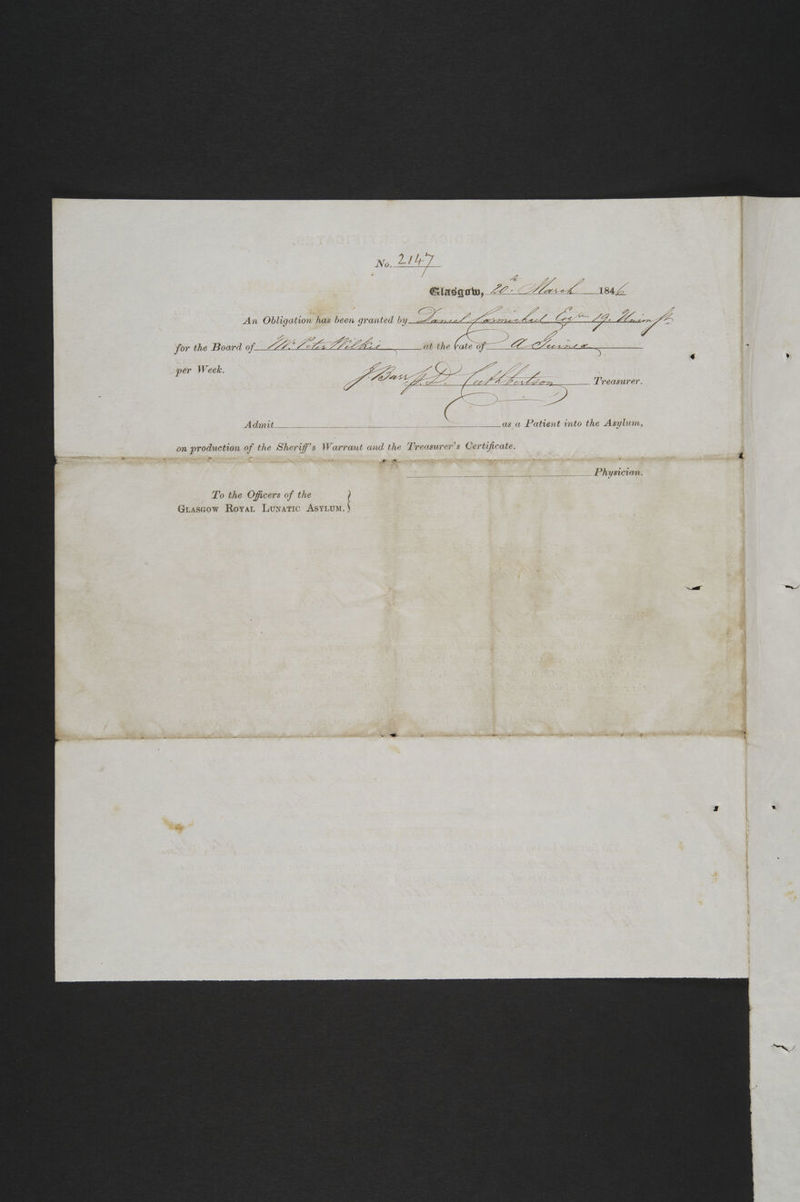 No. 2147
Glasgow, 20th March 1846
An Obligation has been granted by Daniel Carmichael Esqre 19. Union St.
for the Board of Mr. Peter Wilkie at the rate of A Guinea
per Week.
J Barr p. D. Cuthbertson Treasurer.
Admit as a Patient into the Asylum,
on production of the Sheriff's Warrant and the Treasurer's Certificate.
Physician.
To the Officers of the
GLASGOW ROYAL LUNATIC ASYLUM.